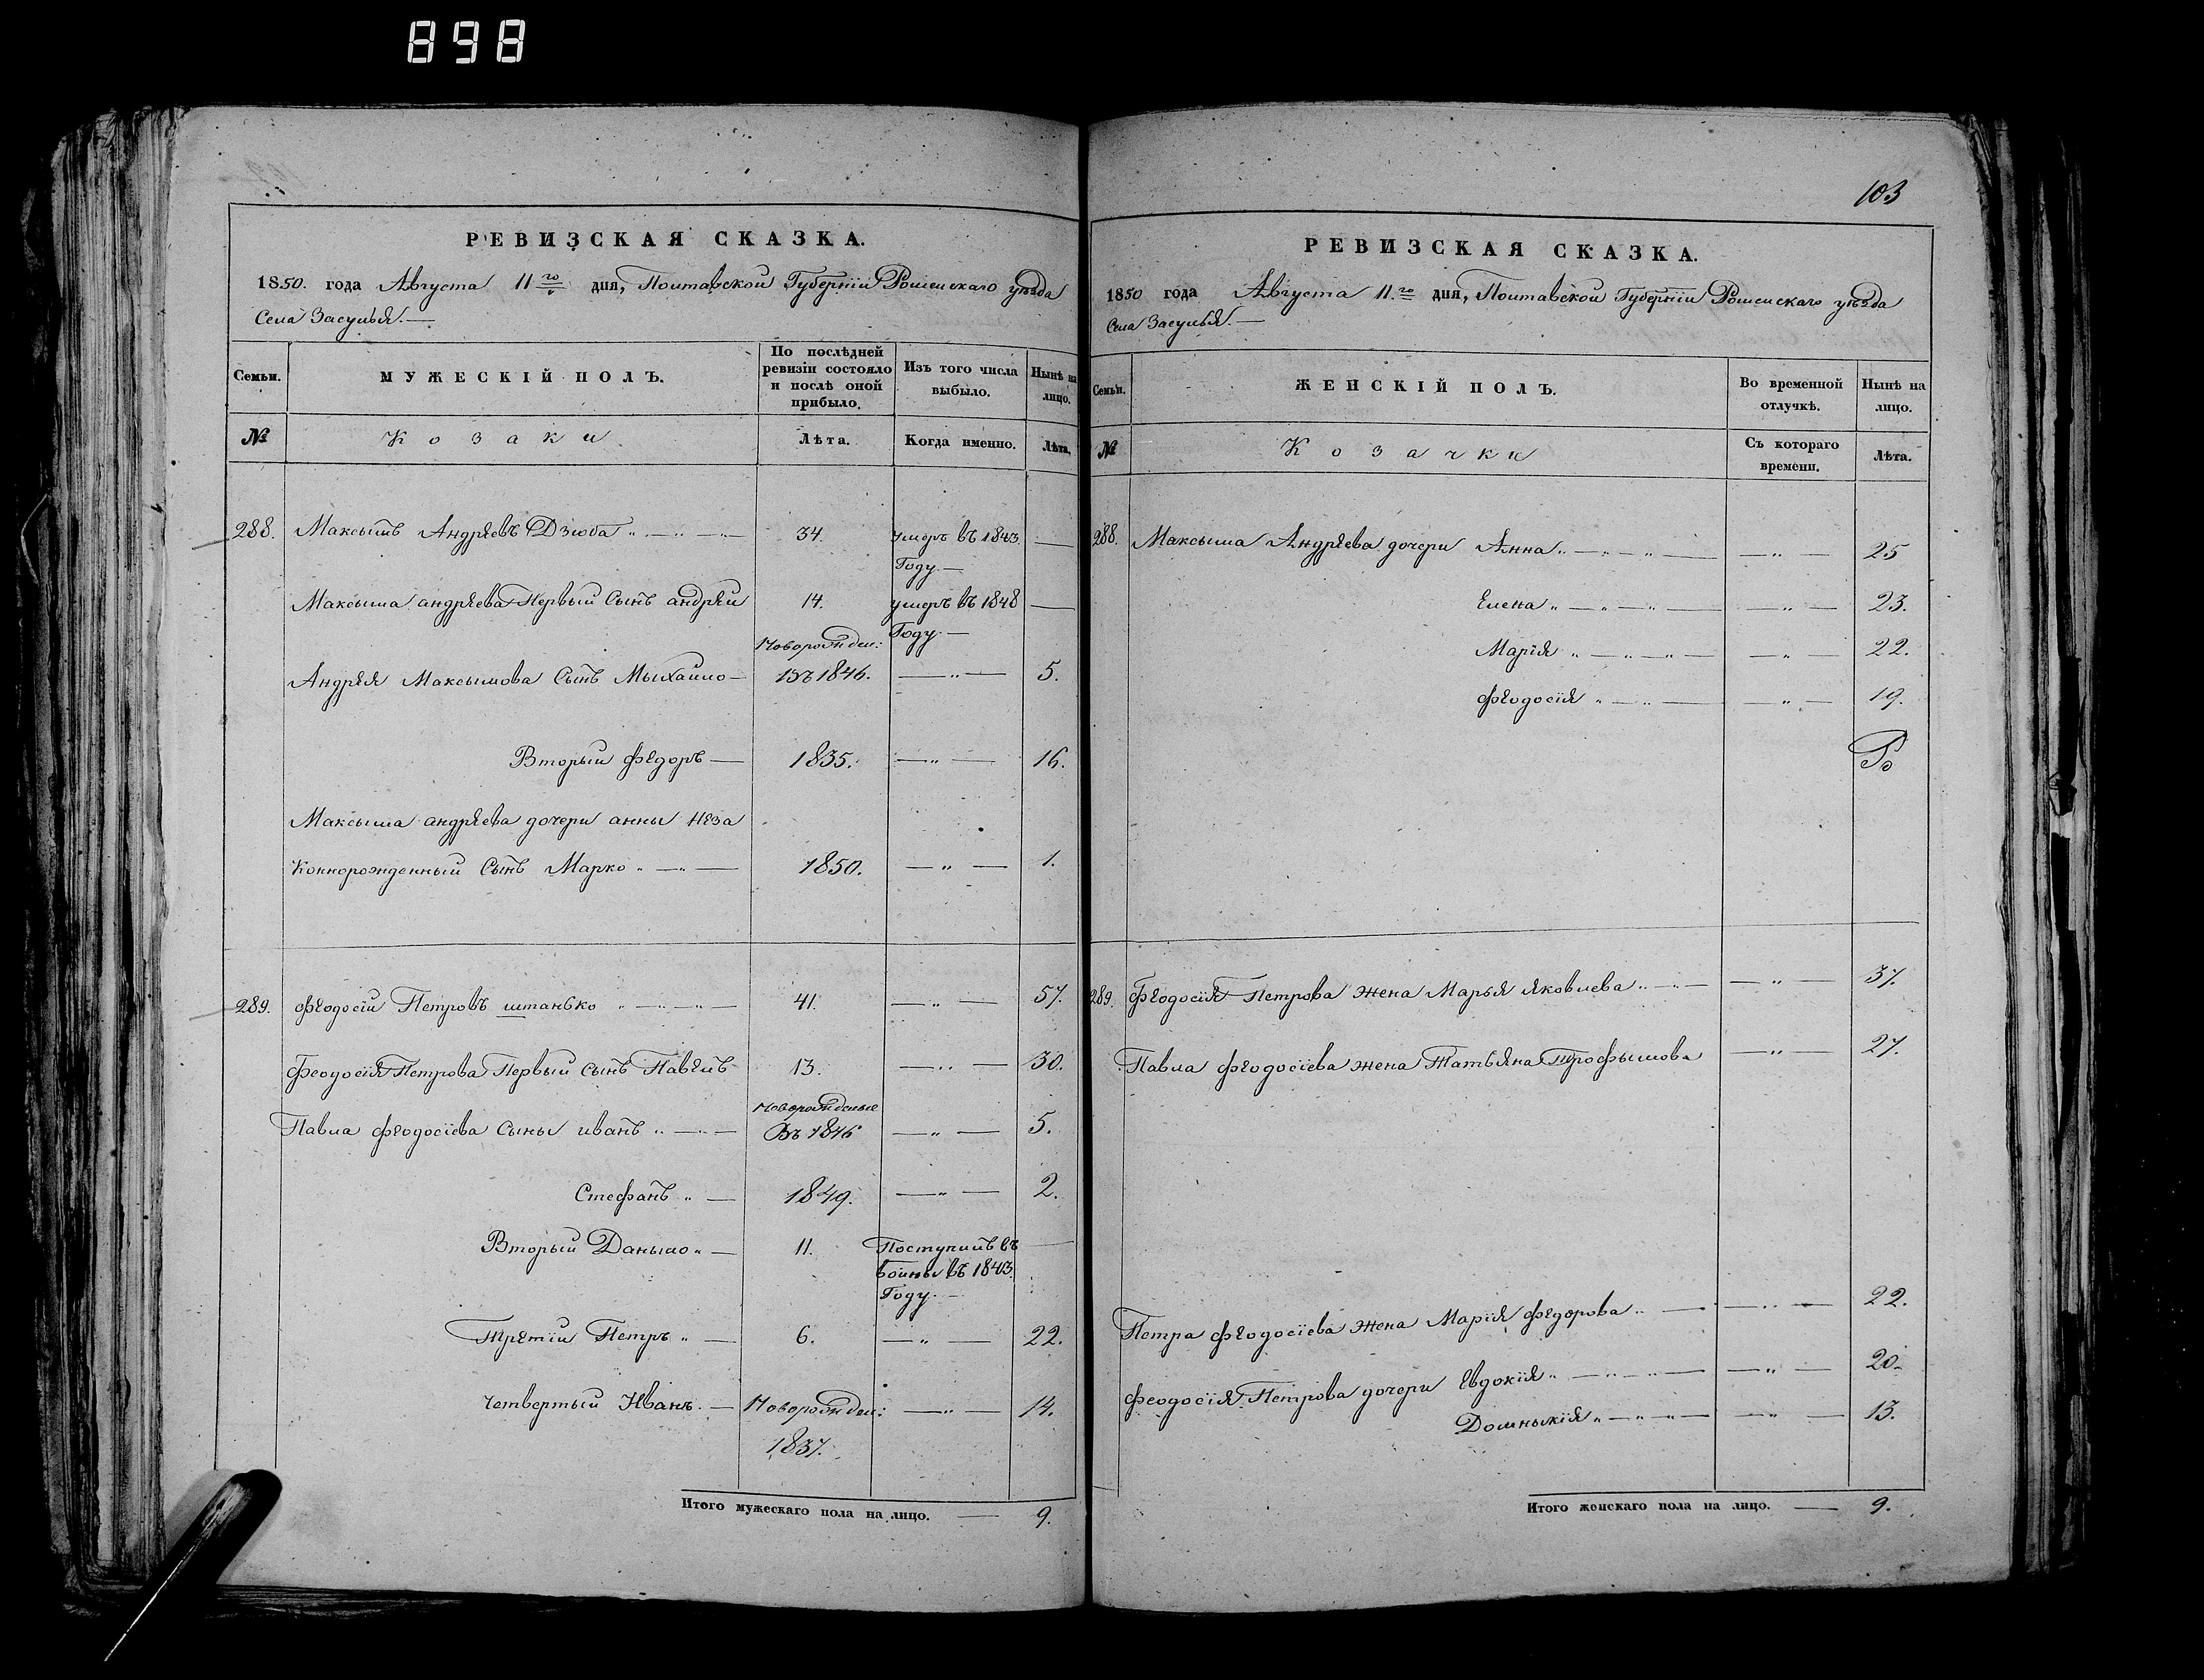 898
РЕВИЗСКАЯ СКАЗКА.
1850. года Августа 11го дня, Полтавской Губерніи Роменскаго уѣзда
Села Засулья.—
Семьи. МУЖЕСКІЙ ПОЛЪ. По послѣдней ревизіи состояло и послѣ оной прибыло. Изъ того числа выбыло. Нынѣ на лицо.
№ Козаки Лѣта. Когда именно. Лѣта.
288. Максымъ Андреевъ Дзюба 34. умеръ въ 1843. —
Году.—
Максыма андреева Первый Сынъ андрей 14. умеръ въ 1848 —
Году.—
Новорожден:
Андрея Максымова Сынъ Мыхайло — въ 1846. — „ — 5.
Вторый Федоръ — 1835. — „ — 16.
Максыма андреева дочери анны неза
коннорожденный Сынъ Марко „ — „ — 1850. — „ — 1.
289. Феодосій Петровъ штанько „ — „ — „ — 41. — „ — 57.
Феодосія Петрова Первый сынъ Павелъ 13. — „ — 30.
Новорожденые
Павла Феодосіева Сыны иванъ „ — „ — Въ 1846 — „ — 5.
Стефанъ „ — 1849. — „ — 2.
Вторый Даныло „ — 11. Поступилъ въ —
воины въ 1843.
Году.—
Третій Петръ „ — 6. — „ — 22.
Четвертый Иванъ. — Новорожден: — „ — 14.
1837.
Итого мужескаго пола на лицо. — 9.
103
РЕВИЗСКАЯ СКАЗКА.
1850 года Августа 11.го дня, Полтавской Губерніи Роменскаго уѣзда
Села Засулья.—
Семьи. ЖЕНСКІЙ ПОЛЪ. Во временной отлучкѣ. Нынѣ на лицо.
№ Козачки Съ котораго времени. Лѣта.
288. Максыма Андреева дочери Анна „ — „ — „ — — „ — 25
Елена „ — „ — „ — — „ — 23.
Марія „ — „ — „ — — „ — 22.
Феодосія „ — „ — — „ — 19.
289. Феодосія Петрова жена Марья яковлева „ — „ — — „ — 37.
Павла Феодосіева жена Татьяна Трофымова — „ — 27.
Петра Феодосіева жена Марія Федорова „ — — „ — 22.
Феодосія Петрова дочери Евдокія „ — „ — „ — — „ — 20.
Домныкія „ — „ — „ — — „ — 13.
Итого женскаго пола на лицо. — 9.